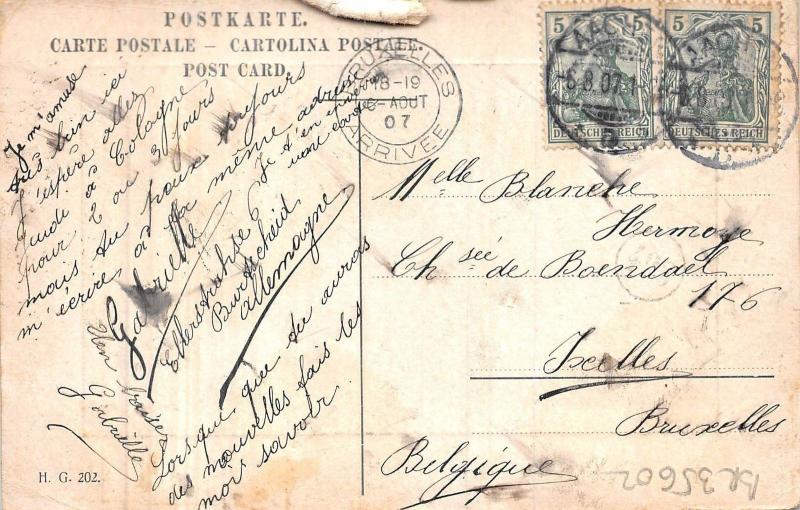 POSTKARTE.
CARTE POSTALE – CARTOLINA POSTALE.
POST CARD.
BRUXELLES
18-19
6-AOUT
07
ARRIVÉE
5 5
AACHEN
-6.8.07
DEUTSCHES REICH
5 5
AACHEN
DEUTSCHES REICH
Je m'amuse
très bien ici
J'espère aller
à Cologne
pour 2 ou 3 jours
mais tu peux toujours
m'écrire à la même adresse
Gabrielle
Ellerstrahse 6
Burtscheid
Allemagne
Je t'en
une carte
Lorsque que tu auras
des nouvelles fais les
moi savoir.
Un baiser
Gabrielle
Melle Blanche
Hermoye
Chsée de Boendael
176
Ixelles
Bruxelles
Belgique
H. G. 202.
bR35602